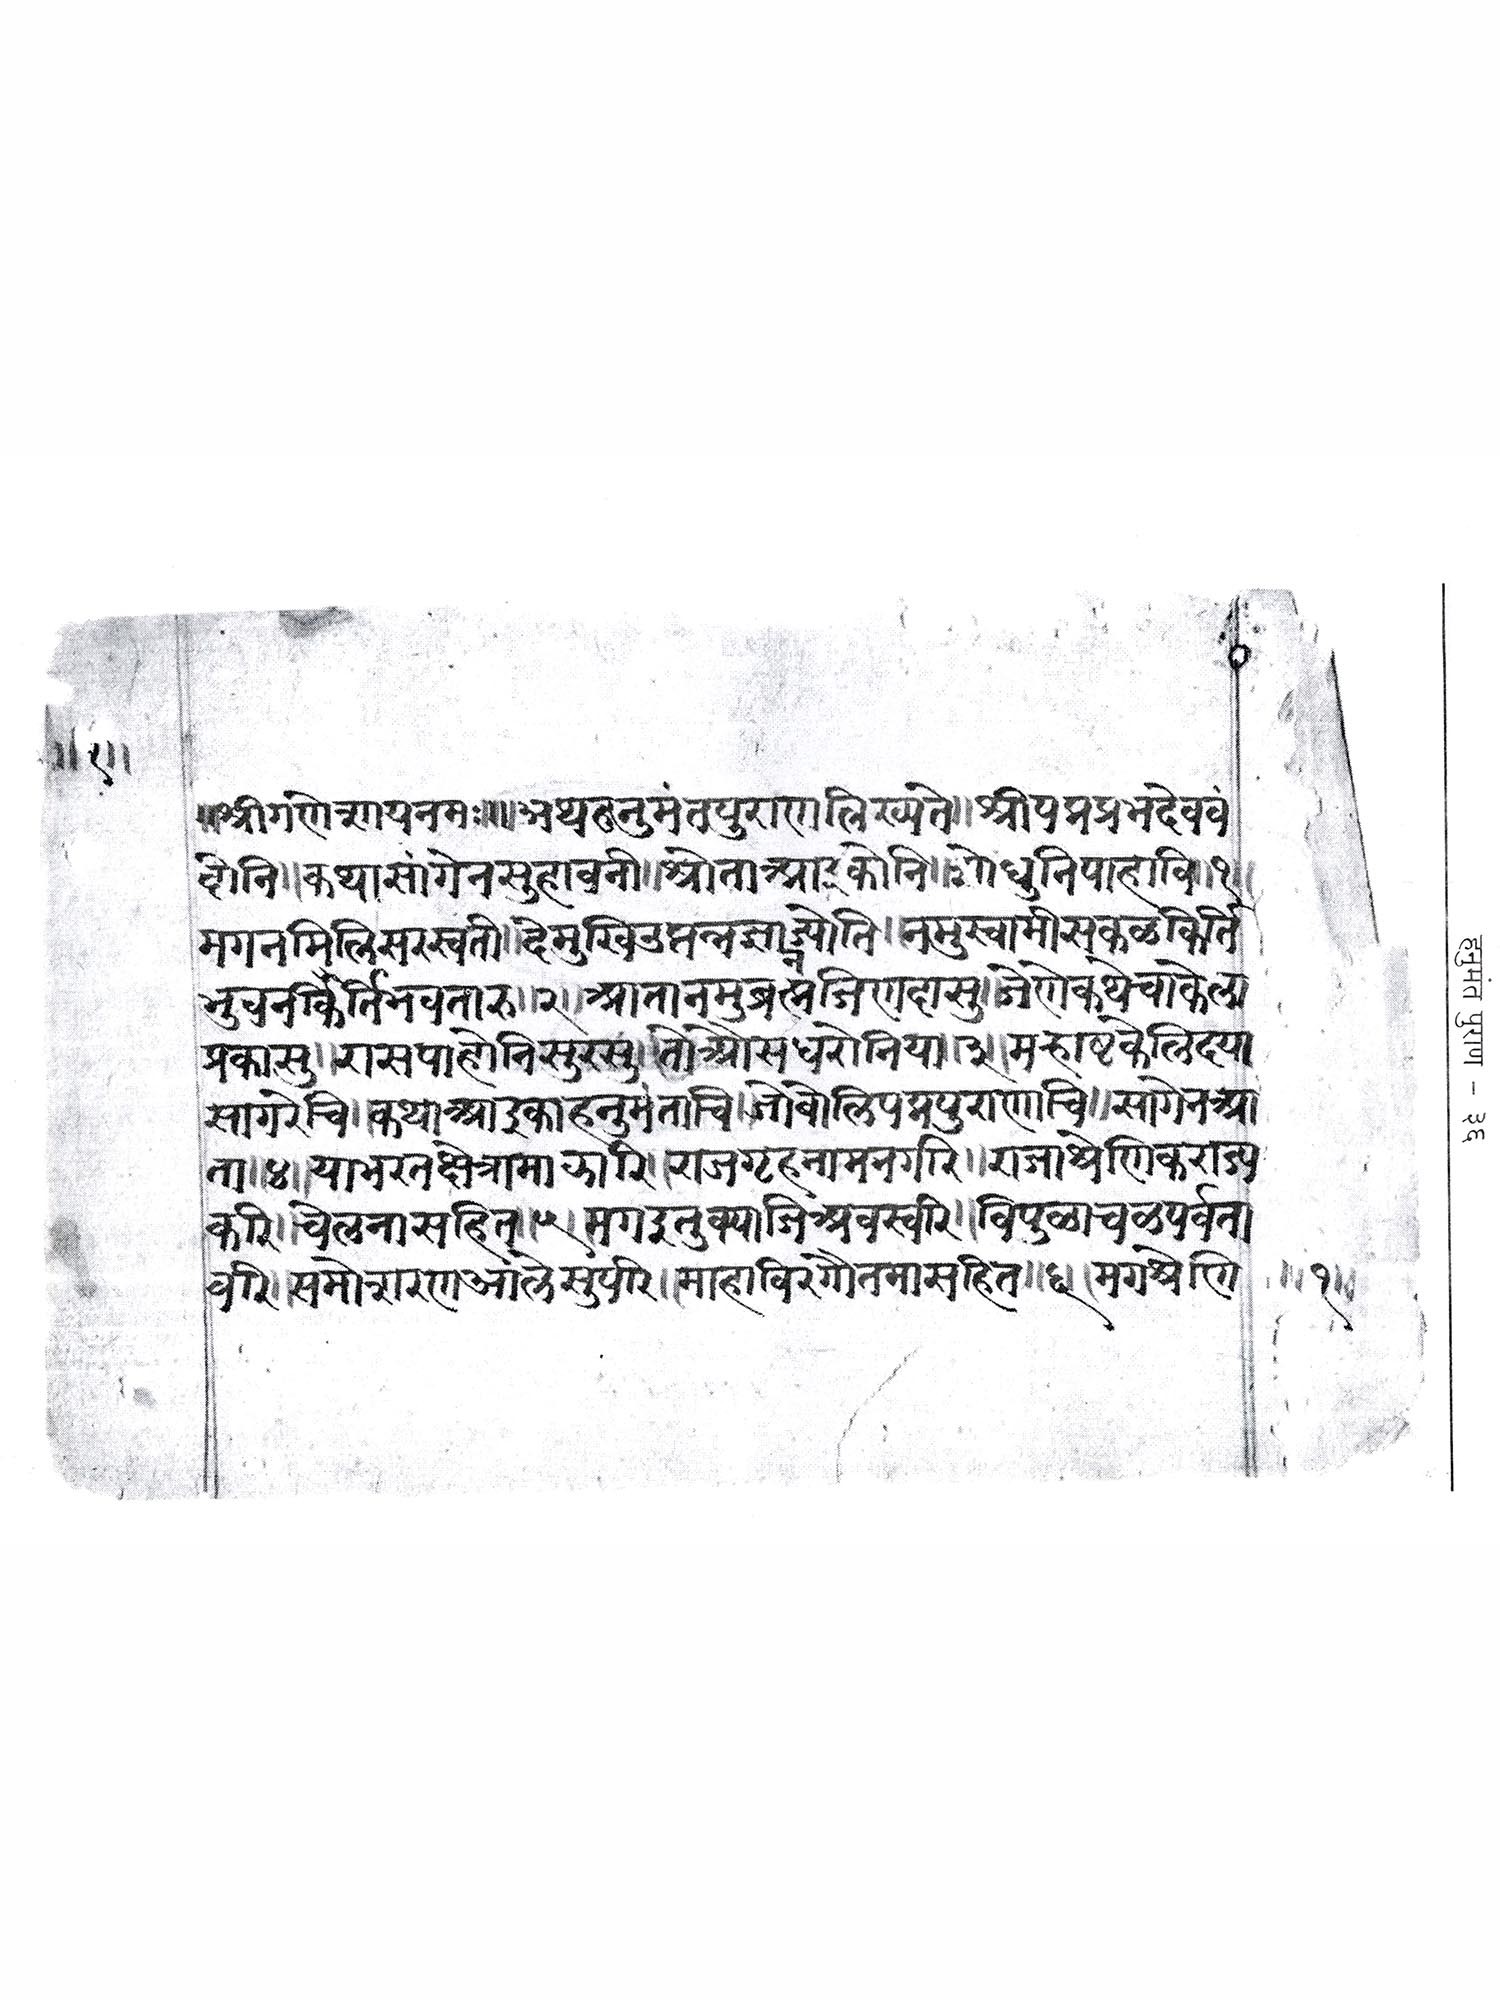 ॥१॥
॥श्रीगणेशायनमः॥॥अथहनुमंतपुराणलिख्यते॥श्रीपद्मप्रभदेववं
दोनि॥कथासांगेनसुहावनी॥श्रोताआइकोनि॥शोधुनिपाहावि॥१॥
मगनमिलिसरस्वती॥देमुखिउप्तन्नज्ञानज्योति॥नमुस्वामीसकळकिर्ति
भुवनकिर्तिभवतारु॥२॥आतानमुब्रह्मजिणदासु॥जेणेकथेचाकेला
प्रकासु॥रासपाहोनिसुरसु॥तोऔसधरोनिया॥३॥मऱ्हाष्टकेलिदया
सागरेचि॥कथाआइकाहनुमंताचि॥जोबोलिपद्मपुराणाचि॥सांगेनआ
ता॥४॥याभरतक्षेत्रामाझारि॥राजगृहनामनगरि॥राजाश्रेणिकराज्य
करि॥चेलनासहित॥५॥मगइतुक्याजिअवस्वरि॥विपुळाचळपर्वता
वरि॥समोशरणआलेसुंपरि॥माहाविरगौतमासहित॥६॥मगश्रेणि
॥१॥
हनुमंत पुराण - ३६